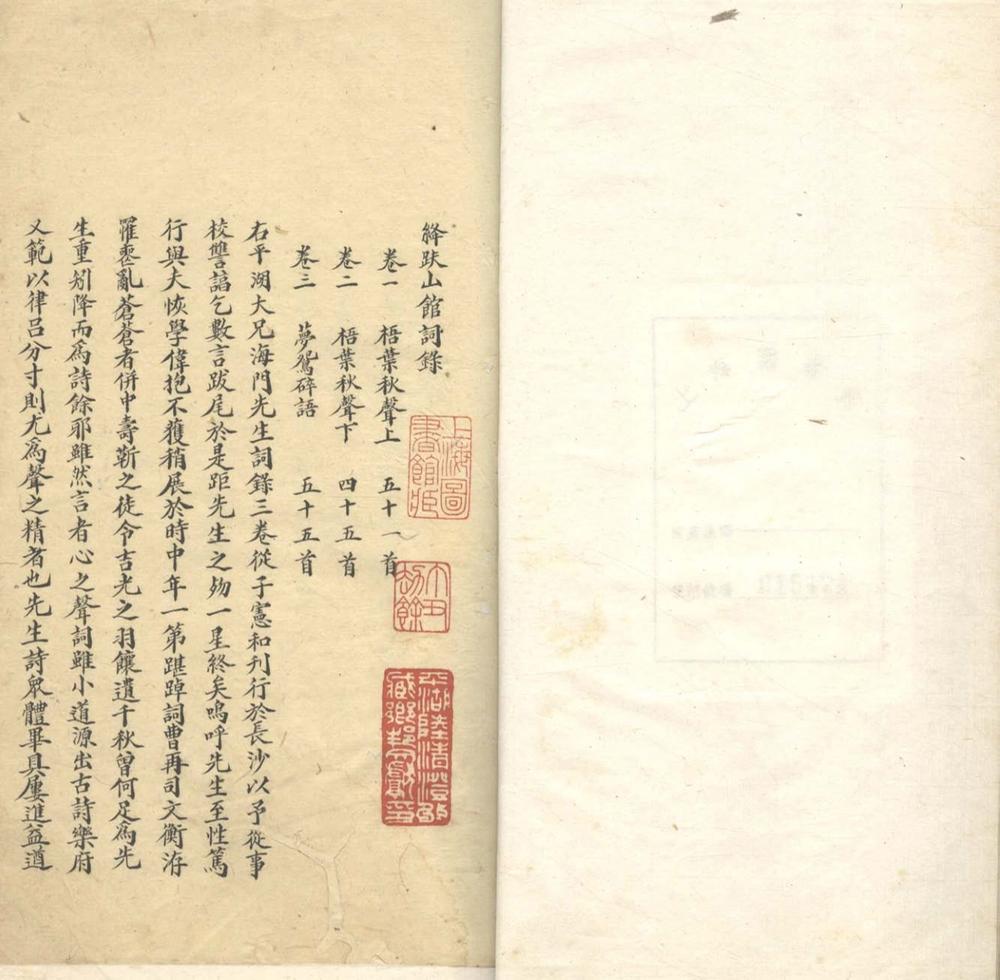 絳趺山館詞錄
卷一 梧葉秋聲上 五十一首
卷二 梧葉秋聲下 四十五首
卷三 夢鴛碎語 五十五首
右平湖大兄海門先生詞錄三卷從子憲和刋行於長沙以予從事
校讐諨乞數言跋尾於是距先生之歾一星終矣嗚呼先生至性篤
行與夫恢學偉抱不獲稍展於時中年一第踸踔詞曹再司文衡洊
罹喪亂蒼蒼者併中壽靳之徒令吉光之羽饟遺千秋曾何足爲先
生重矧降而爲詩餘耶雖然言者心之聲詞雖小道源出古詩樂府
又範以律呂分寸則尤爲聲之精者也先生詩衆體畢具屢進益遒
上海圖書館臧
大田劫餘
平湖陸清澄
臧鄉邦文獻